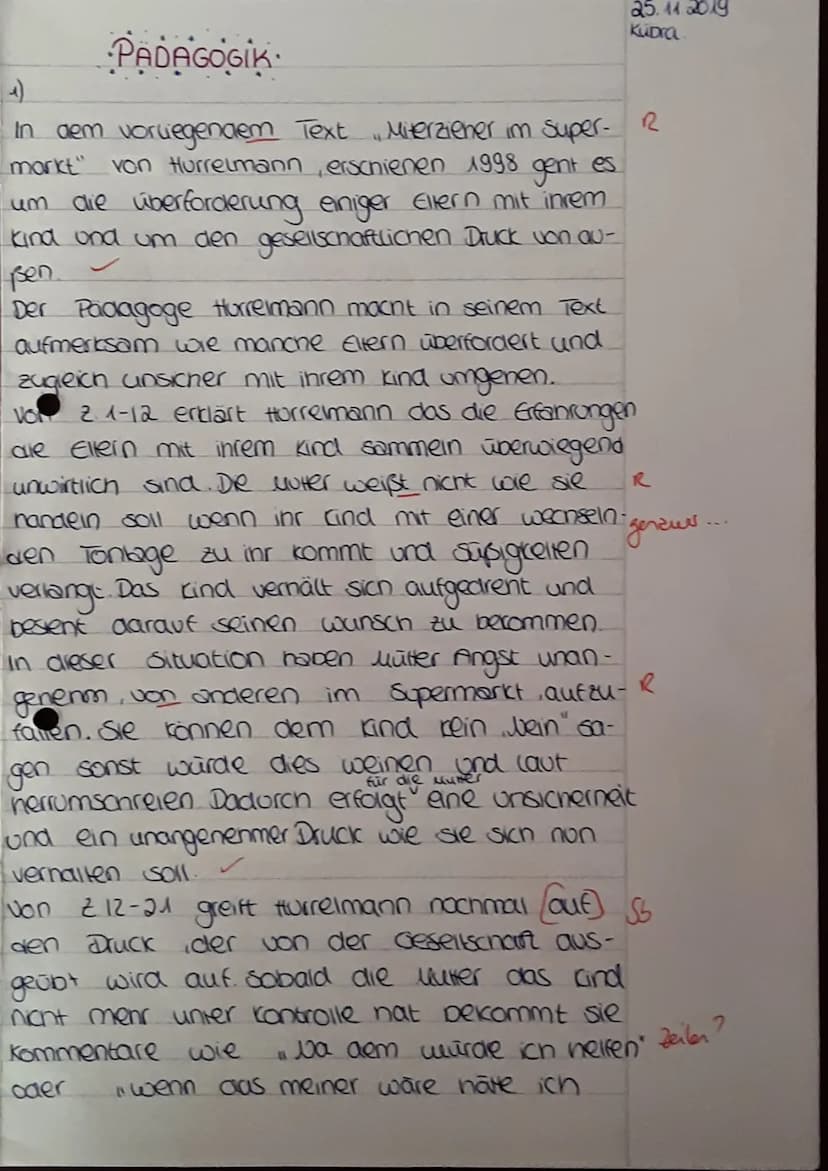 25.11.2019
Kübra
PÄDAGOGIK
1)
In dem vorliegendem Text „Miterzieher im Super- R
markt" von Hurrelmann, erschienen 1998 geht es
um die überforderung einiger Eltern mit ihrem
Kind und um den gesellschaftlichen Druck von au-
ßen. ✓
Der Pädagoge Hurrelmann macht in seinem Text
aufmerksam wie manche Eltern überfordert und
zugleich unsicher mit ihrem Kind umgehen.
Von Z 1-12 erklärt Hurrelmann das die Erfahrungen
die Eltern mit ihrem Kind sammeln überwiegend
unwirtlich sind. Die Mutter weißt nicht wie sie R
handeln soll wenn ihr Kind mit einer wechseln- genaues...
den Tonlage zu ihr kommt und süßigkeiten
verlangt. Das Kind verhält sich aufgedreht und
besteht darauf seinen wunsch zu bekommen.
In dieser Situation haben Mütter Angst unan-
genehm, von anderen im Supermarkt, aufzu- R
fallen. Sie können dem Kind kein „Nein" sa-
gen sonst würde dies weinen und laut
herrumschreien Dadurch erfolgt für die Mutter eine unsicherheit
und ein unangenehmer Druck wie sie sich nun
verhalten soll. ✓
Von Z 12-21 greift Hurrelmann nochmal (auf) Sb
den Druck, der von der Gesellschaft aus-
geübt wird auf. Sobald die Mutter das Kind
nicht mehr unter Kontrolle hat bekommt sie
Kommentare wie „Na dem würde ich helfen" Zeilen?
oder „wenn das meiner wäre häte ich